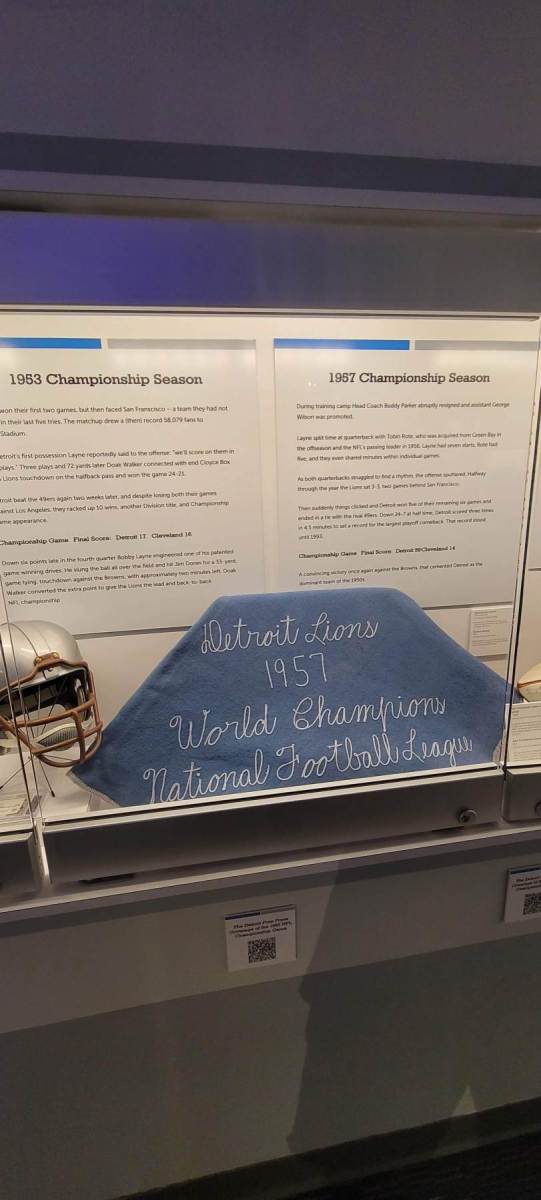 1953 Championship Season
won their first two games, but then faced San Francisco – a team they had not
in their last five tries. The matchup drew a (then) record 58,079 fans to
Stadium.
etroit's first possession Layne reportedly said to the offense: "we'll score on them in
plays." Three plays and 72 yards later Doak Walker connected with end Cloyce Box
Lions touchdown on the halfback pass and won the game 24-21.
troit beat the 49ers again two weeks later, and despite losing both their games
ainst Los Angeles, they racked up 10 wins, another Division title, and Championship
ame appearance.
Championship Game Final Score: Detroit 17 Cleveland 16
Down six points late in the fourth quarter Bobby Layne engineered one of his patented
game winning drives. He slung the ball all over the field and hit Jim Doran for a 33-yard,
game tying, touchdown against the Browns, with approximately two minutes left. Doak
Walker converted the extra point to give the Lions the lead and back-to-back
NFL championship
1957 Championship Season
During training camp Head Coach Buddy Parker abruptly resigned and assistant George
Wilson was promoted.
Layne split time at quarterback with Tobin Rote, who was acquired from Green Bay in
the offseason and the NFL's passing leader in 1956. Layne had seven starts, Rote had
five, and they even shared minutes within individual games.
As both quarterbacks struggled to find a rhythm, the offense sputtered. Halfway
through the year the Lions sat 3-3, two games behind San Francisco.
Then suddenly things clicked and Detroit won five of their remaining six games and
ended in a tie with the rival 49ers. Down 24-7 at half time, Detroit scored three times
in 4.5 minutes to set a record for the largest playoff comeback. That record stood
until 1993.
Championship Game Final Score: Detroit 59 Cleveland 14
A convincing victory once again against the Browns, that cemented Detroit as the
dominant team of the 1950s.
Detroit Lions
1957
World Champions
National Football League
The Detroit Free Press
Coverage of the 1953 NFL
Championship Game
The Detroit